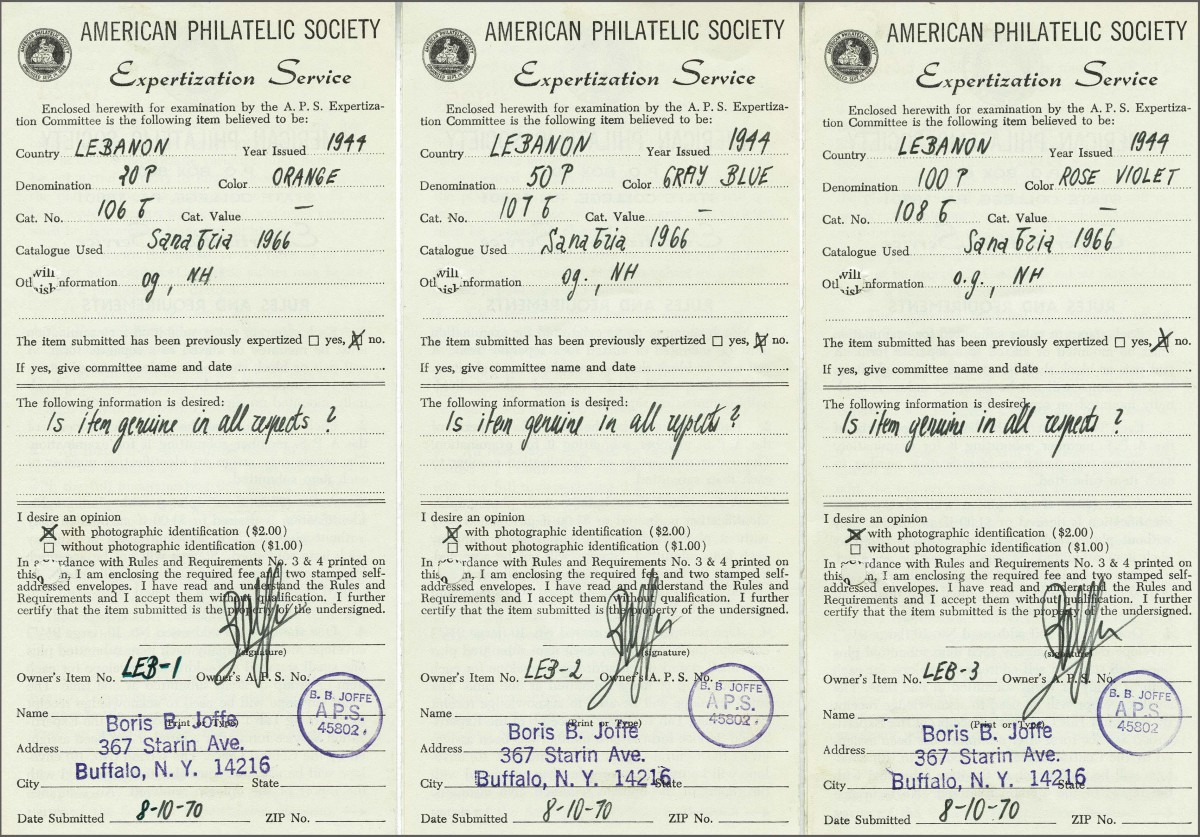 AMERICAN PHILATELIC SOCIETY
Expertization Service
Enclosed herewith for examination by the A. P. S. Expertiza-
tion Committee is the following item believed to be:
Country LEBANON Year Issued 1944
Denomination 20 P Color ORANGE
Cat. No. 106 б Cat. Value —
Catalogue Used Sanabria 1966
will
Otl nformation og, NH
The item submitted has been previously expertized yes, no.
If yes, give committee name and date
The following information is desired:
Is item genuine in all respects ?
I desire an opinion
with photographic identification ($2.00)
without photographic identification ($1.00)
rdance with Rules and Requirements No. 3 & 4 printed on
this n, I am enclosing the required fee and two stamped self-
addressed envelopes. I have read and understand the Rules and
Requirements and I accept them without qualification. I further
certify that the item submitted is the property of the undersigned.
(signature)
Owner's Item No. LEB-1 Owner's A. P. S. No.
B. B. JOFFE
A.P.S.
45802
Name
(Print or Type)
Boris B. Joffe
Address 367 Starin Ave.
Buffalo, N. Y. 14216
City State
Date Submitted 8-10-70 ZIP No.
AMERICAN PHILATELIC SOCIETY
Expertization Service
Enclosed herewith for examination by the A. P. S. Expertiza-
tion Committee is the following item believed to be:
Country LEBANON Year Issued 1944
Denomination 50 P Color GRAY BLUE
Cat. No. 107 б Cat. Value —
Catalogue Used Sanabria 1966
will
Otl nformation og., NH
The item submitted has been previously expertized yes, no.
If yes, give committee name and date
The following information is desired:
Is item genuine in all respects ?
I desire an opinion
with photographic identification ($2.00)
without photographic identification ($1.00)
rdance with Rules and Requirements No. 3 & 4 printed on
this n, I am enclosing the required fee and two stamped self-
addressed envelopes. I have read and understand the Rules and
Requirements and I accept them without qualification. I further
certify that the item submitted is the property of the undersigned.
(signature)
Owner's Item No. LEB-2 Owner's A. P. S. No.
B. B. JOFFE
A.P.S.
45802
Name
(Print or Type)
Boris B. Joffe
Address 367 Starin Ave.
Buffalo, N. Y. 14216
City State
Date Submitted 8-10-70 ZIP No.
AMERICAN PHILATELIC SOCIETY
Expertization Service
Enclosed herewith for examination by the A. P. S. Expertiza-
tion Committee is the following item believed to be:
Country LEBANON Year Issued 1944
Denomination 100 P Color ROSE VIOLET
Cat. No. 108 б Cat. Value —
Catalogue Used Sanabria 1966
will
Otl nformation o.g., NH
The item submitted has been previously expertized yes, no.
If yes, give committee name and date
The following information is desired:
Is item genuine in all respects ?
I desire an opinion
with photographic identification ($2.00)
without photographic identification ($1.00)
rdance with Rules and Requirements No. 3 & 4 printed on
this n, I am enclosing the required fee and two stamped self-
addressed envelopes. I have read and understand the Rules and
Requirements and I accept them without qualification. I further
certify that the item submitted is the property of the undersigned.
(signature)
Owner's Item No. LEB-3 Owner's A. P. S. No.
B. B. JOFFE
A.P.S.
45802
Name
(Print or Type)
Boris B. Joffe
Address 367 Starin Ave.
Buffalo, N. Y. 14216
City State
Date Submitted 8-10-70 ZIP No.